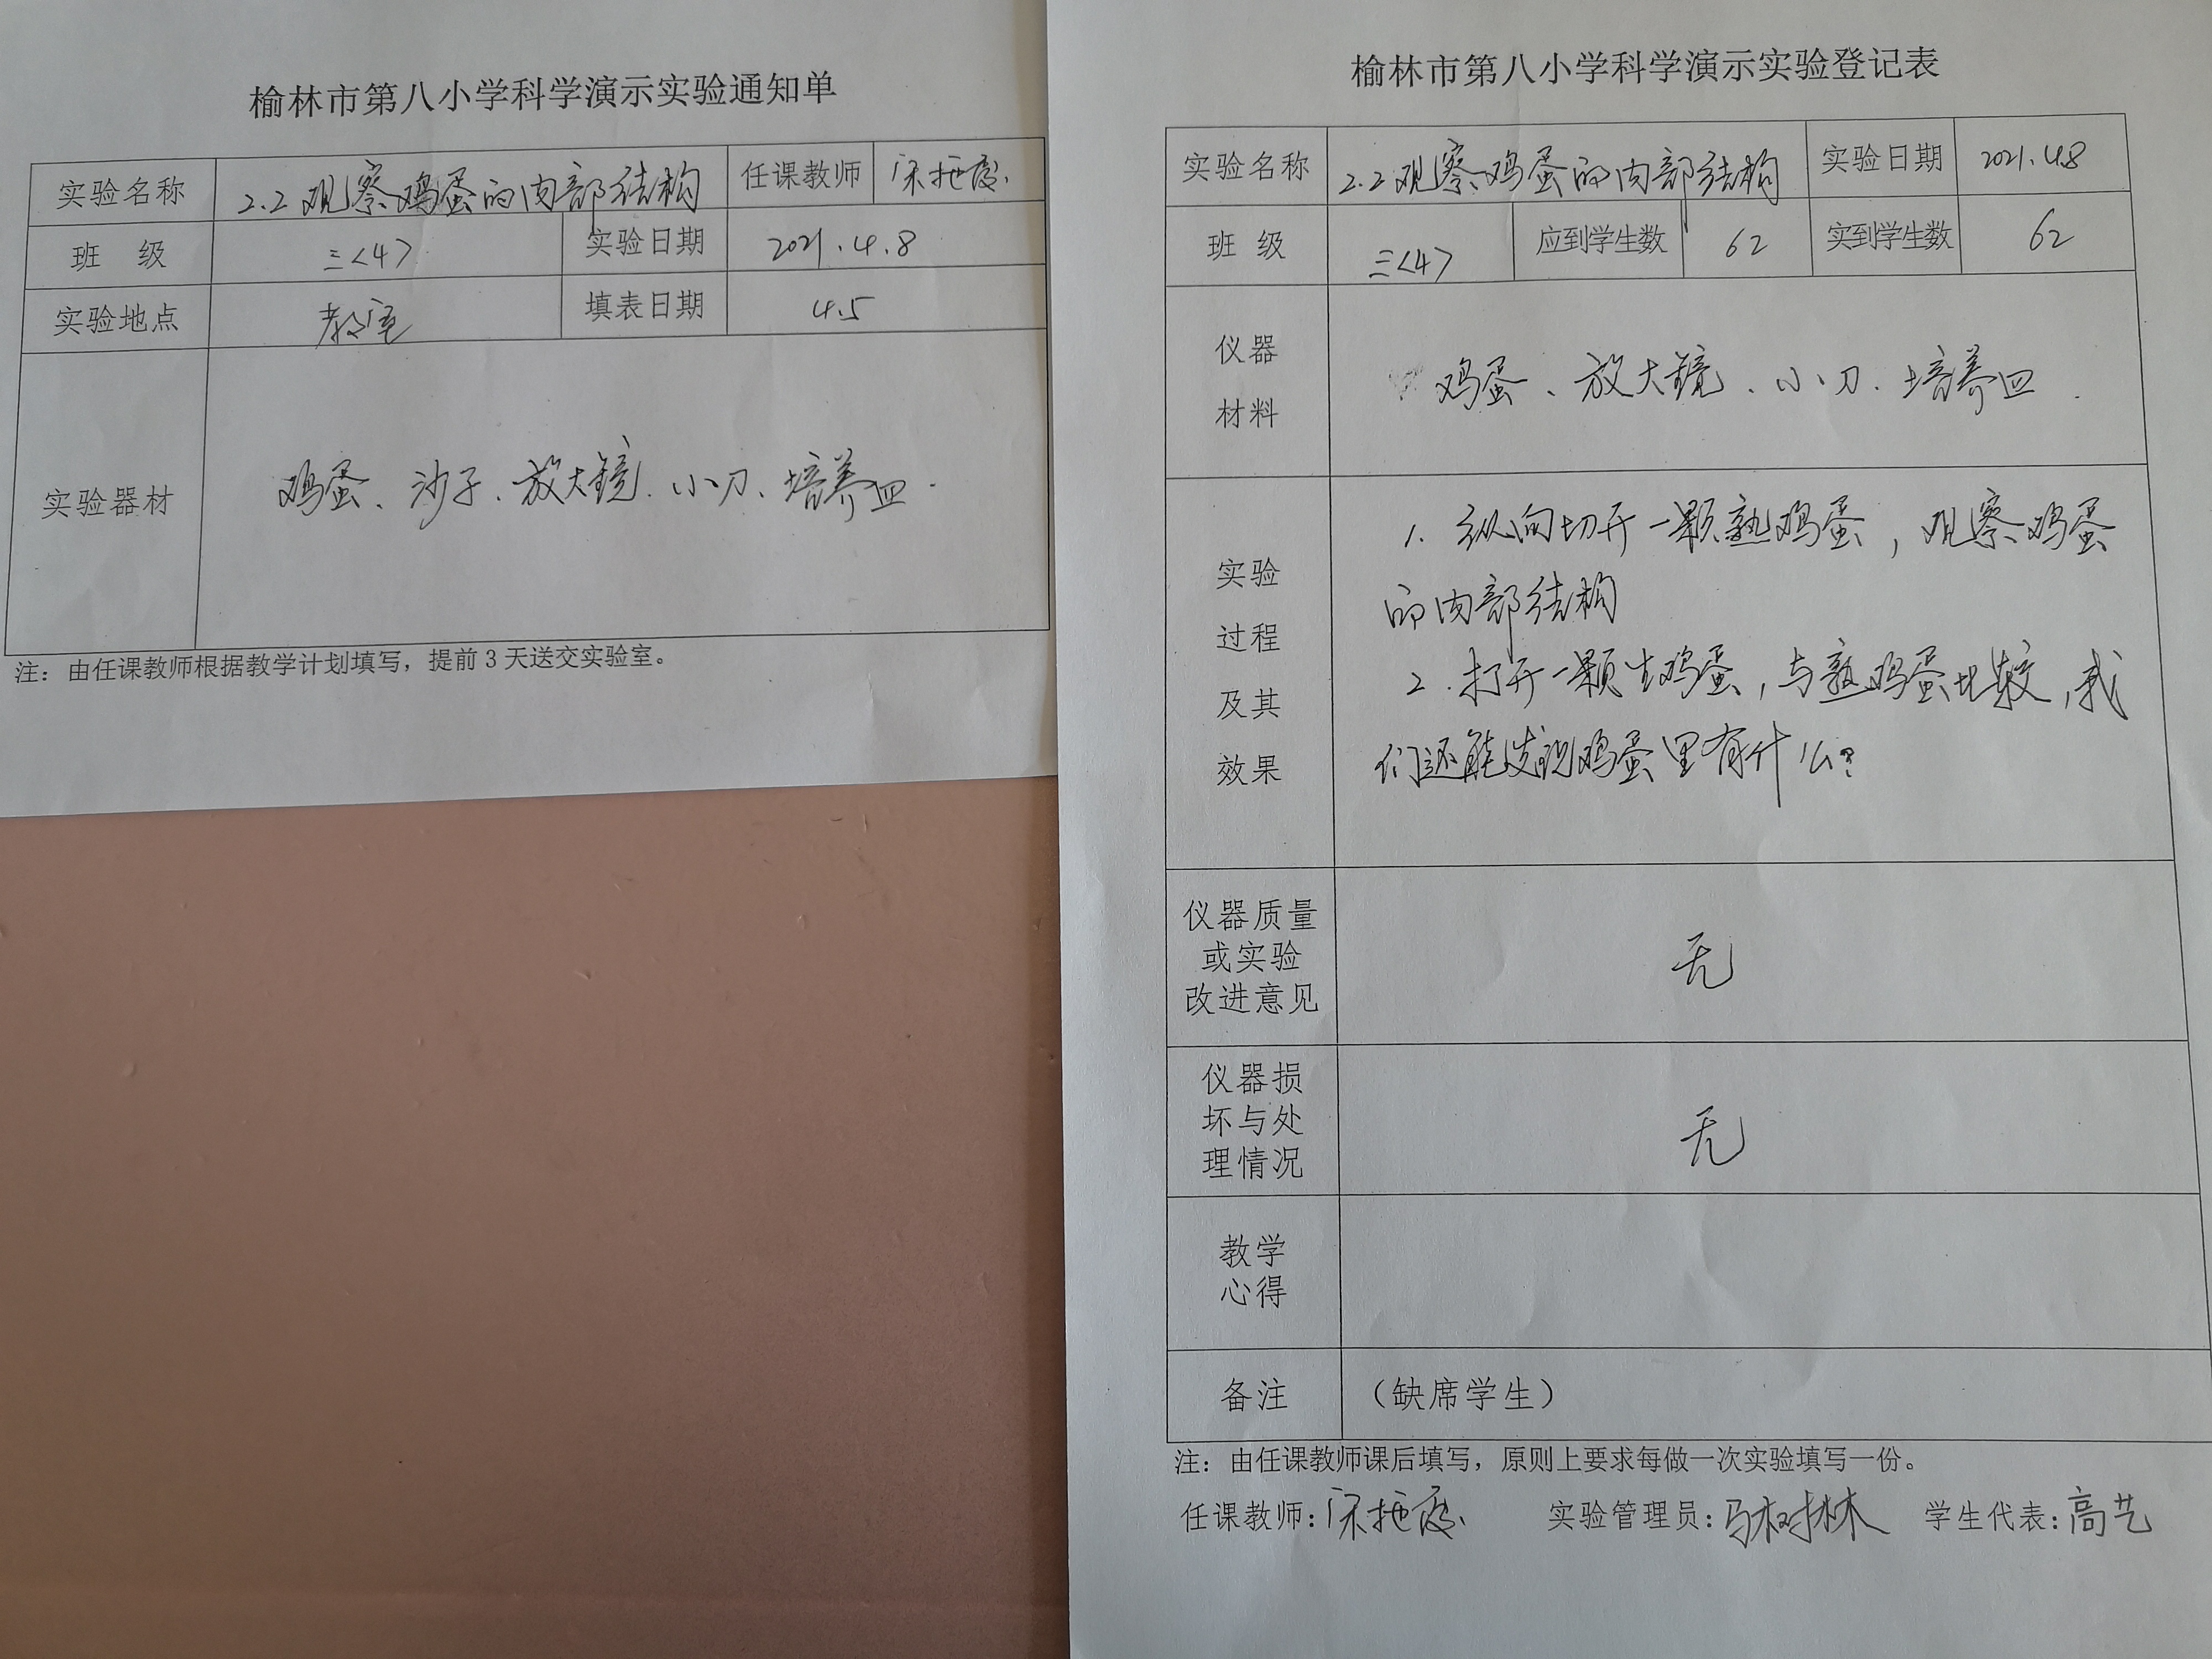 榆林市第八小学科学演示实验通知单
实验名称 2.2观察鸡蛋的内部结构 任课教师
班 级 三<4> 实验日期 2021.4.8
实验地点 教室 填表日期 4.5
实验器材 鸡蛋、沙子、放大镜、小刀、培养皿.
注：由任课教师根据教学计划填写，提前3天送交实验室。
榆林市第八小学科学演示实验登记表
实验名称 2.2观察鸡蛋的内部结构 实验日期 2021.4.8
班 级 三<4> 应到学生数 62 实到学生数 62
仪器
材料
鸡蛋、放大镜、小刀、培养皿.
实验
过程
及其
效果
1. 纵向切开一颗熟鸡蛋，观察鸡蛋
的内部结构
2. 打开一颗生鸡蛋，与熟鸡蛋比较，我
们还能发现鸡蛋里有什么？
仪器质量
或实验
改进意见
无
仪器损
坏与处
理情况
无
教学
心得
备注 （缺席学生）
注：由任课教师课后填写，原则上要求每做一次实验填写一份。
任课教师： 实验管理员：马树林 学生代表：高艺